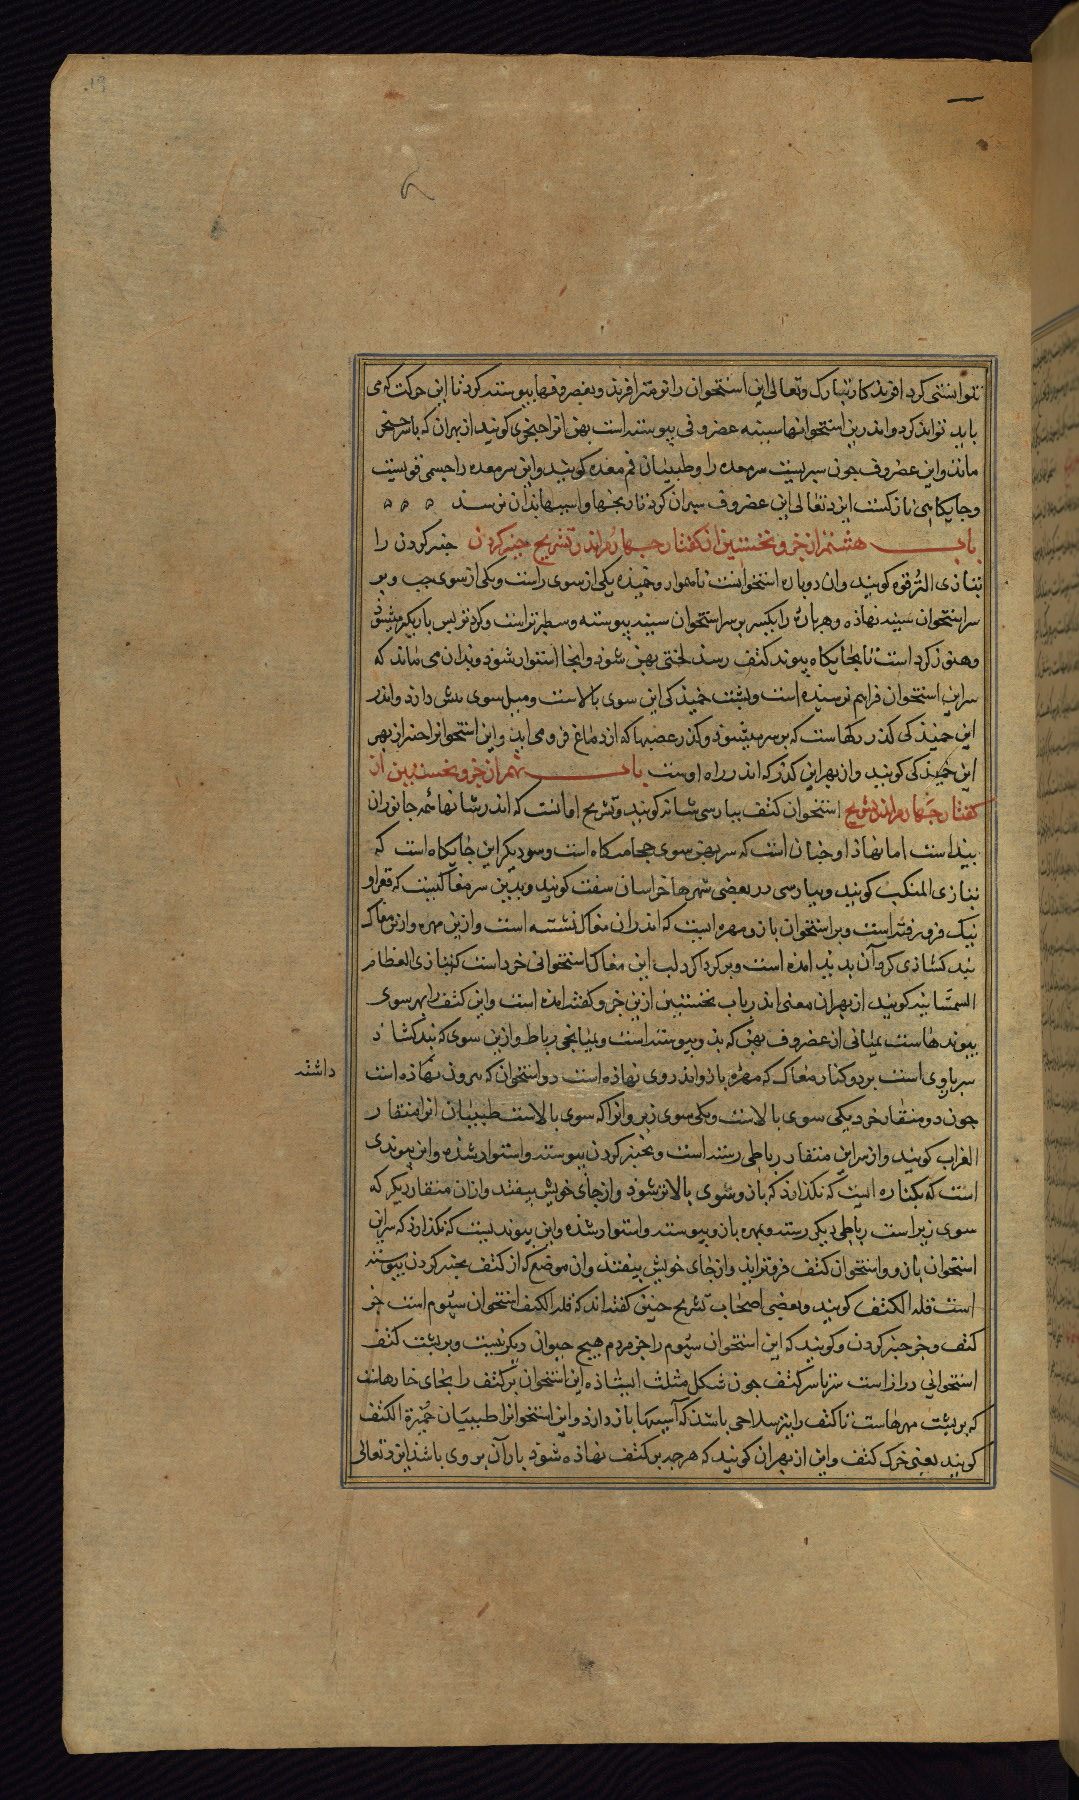 نتوانستی کرد افریذکار تبارک وتعالی این استخوان را نومتر افریذ و بغضروفها بپیوسته کرد تا این حرکت که می
باید تواند کرد واندرین استخوانها سینه غضروفی پیوسته است پهن انرا حنجری کویند از بهران که باسر خنجر
ماند واین غضروف جون سپریست سر معده را وطبیبان فم معده کویند واین سر معده را حسی قویست
وجایکاهی نازکست ایزد تعالی این غضروف سپران کرد تا رنجها واسیبها بذان نرسد
باب هشتم از جزو نخستین از کفتار جهارم اندر تشریح جنبر کردن جنبر کردن را
بتازی الترقوه کویند وان دو پاره استخوانست ناهموار وخمیده یکی از سوی راست ویکی از سوی جپ و بر
سر استخوان سینه نهاذه وهر پاره را یکسر بر سر استخوان سینه پیوسته وسطبرتر است وکردتر پس باریکتر میشود
وهنوز کرد است تا بجایکاه پیوند کتف رسد لختی پهن شود وانجا استوار شود وبدان می ماند که
سر این استخوان فراهم نرسیده است وپشت خمیذکی این سوی بالاست ومیل سوی پیش دارد واندر
این خمیذکی کذر رکهاست که بر سر میشود وکذر عصبها که از دماغ فرو می اید واین استخوانرا جنبر از بهر
این خمیذکی کویند واز بهر این کذر که اندر راه اوست باب نهم از جزو نخستین از
کفتار جهارم اندر تشریح استخوان کتف بپارسی شانه کویند وتشریح اوانست که اندر شانها همه جانوران
بیداست اما نهاذ او جنان است که سر پهن سوی حجامتکاه است وسر دیکر این جایکاه است که
بتازی المنکب کویند وبپارسی در بعضی شهرها خراسان سفت کویند وبدین سر مغاکیست که قعر او
نیک فرو رفته است وبر استخوان بازو مهره ایست که اندران مغاک نشسته است وازین مهره وازین مغاک
بند کشاذی کرد آن بدید امده است وبر کرداکرد لب این مغاک استخوانی خرد است که بتازی العظام
السمسانیه کویند از بهران معنی اندر باب نخستین ازین جزو کفته امده است واین کتف را بهر سوی
پیوندهاست بمیانی از غضروف پهن که بذو پیوسته است وبمیانجی رباط وازین سوی که بند کشاد
سر بازوی است بر دو کنار مغاک که مهره بازو اندر وی نهاذه است دو استخوان که بیرون نهاذه است
داشته
جون دو منقار خرد یکی سوی بالاست ویکی سوی زیر وانرا که سوی بالاست طبیبان انرا منقار
الغراب کویند واز سر این منقار رباطی رسته است وبجنبر کردن پیوسته واستوار شذه واین پیوندی
است که بکناره ایست که نکذارد که بازو سوی بالاتر شود واز جای خویش بیفتد وازان منقار دیکر که
سوی زیر است رباطی دیکر رسته وبمهره بازو پیوسته واستوار شذه واین پیوند نیست که نکذارد که سر این
استخوان بازو واستخوان کتف فروتر ایذ واز جای خویش بیفتد وان موضع که از کتف بجنبر کردن پیوسته
است قله الکتف کویند وبعضی اصحاب تشریح جنین کفته اند که قله الکتف استخوان سیوم است جز
کتف وجز جنبر کردن وکویند که این استخوان سیوم را جز مردم هیچ حیوان دیکر نیست وبر پشت کتف
استخوانی دراز است سر تا سر کتف جون شکل مثلث ایستاذه این استخوان بر کتف را بجای خارهاست
که بر پشت مهرهاست تا کتف را نیز سلاحی باشد که آسیبها باز دارد واین استخوانرا طبیبان حمیرة الکتف
کویند یعنی خرک کتف واین از بهران کویند که هرجه بر کتف نهاذه شود بار آن بر وی باشد ایزد تعالی